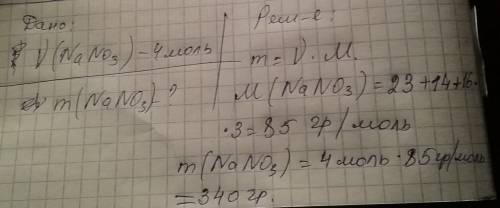 Дано:
ν(NaNO₃)-4моль
m(NaNO₃)-?
Реш-е:
m=ν·M.
M(NaNO₃)=23+14+16·
·3=85 гр/моль
m(NaNO₃)=4моль·85гр/моль
=340гр.